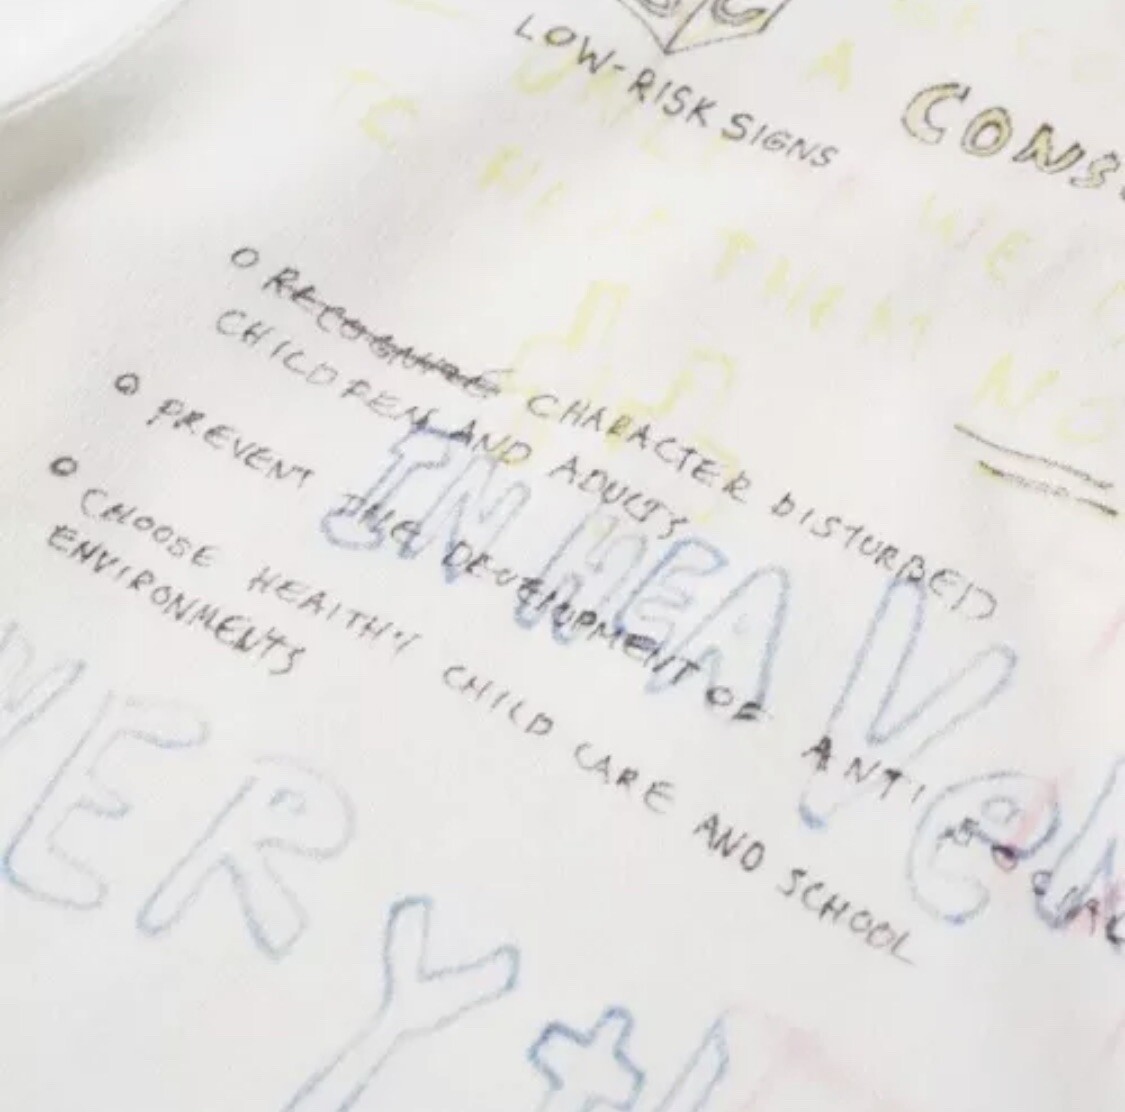 LOW-RISK SIGNS
A
CONS
TO
WE
THEM NO
O RECOGNIZE CHARACTER DISTURBED
CHILDREN AND ADULTS
O PREVENT THE DEVELOPMENT OF ANTI SOCIAL
O CHOOSE HEALTHY CHILD CARE AND SCHOOL
ENVIRONMENTS
IN HEAVeN
VERY